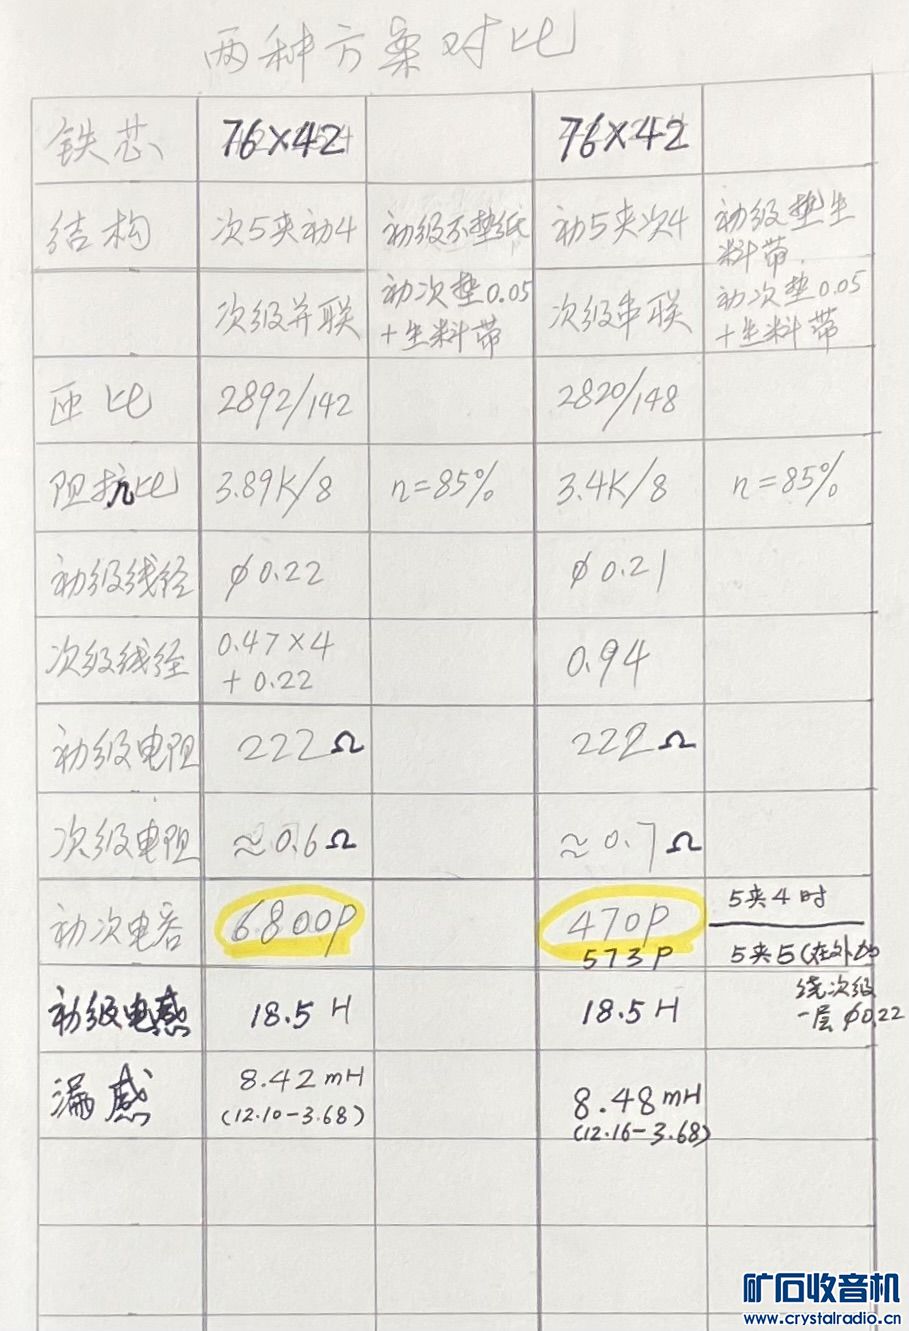 两种方案对比
铁芯 76×42 76×42
结构 次5夹初4 初级不垫纸 初5夹次4 初级垫生
料带.
次级并联 初次垫0.05 次级串联 初次垫0.05
+生料带 +生料带
匝比 2892/142 2820/148
阻抗比 3.89K/8 η=85% 3.4K/8 η=85%
初级线径 φ0.22 φ0.21
次级线径 0.47×4 0.94
+0.22
初级电阻 222Ω 222Ω
次级电阻 ≈0.6Ω ≈0.7Ω
初次电容 6800P 470P 5夹4时
573P 5夹5(在外加
绕次级
一层φ0.22
初级电感 18.5H 18.5H
漏感 8.42mH 8.48mH
(12.10-3.68) (12.16-3.68)
矿石收音机
www.crystalradio.cn